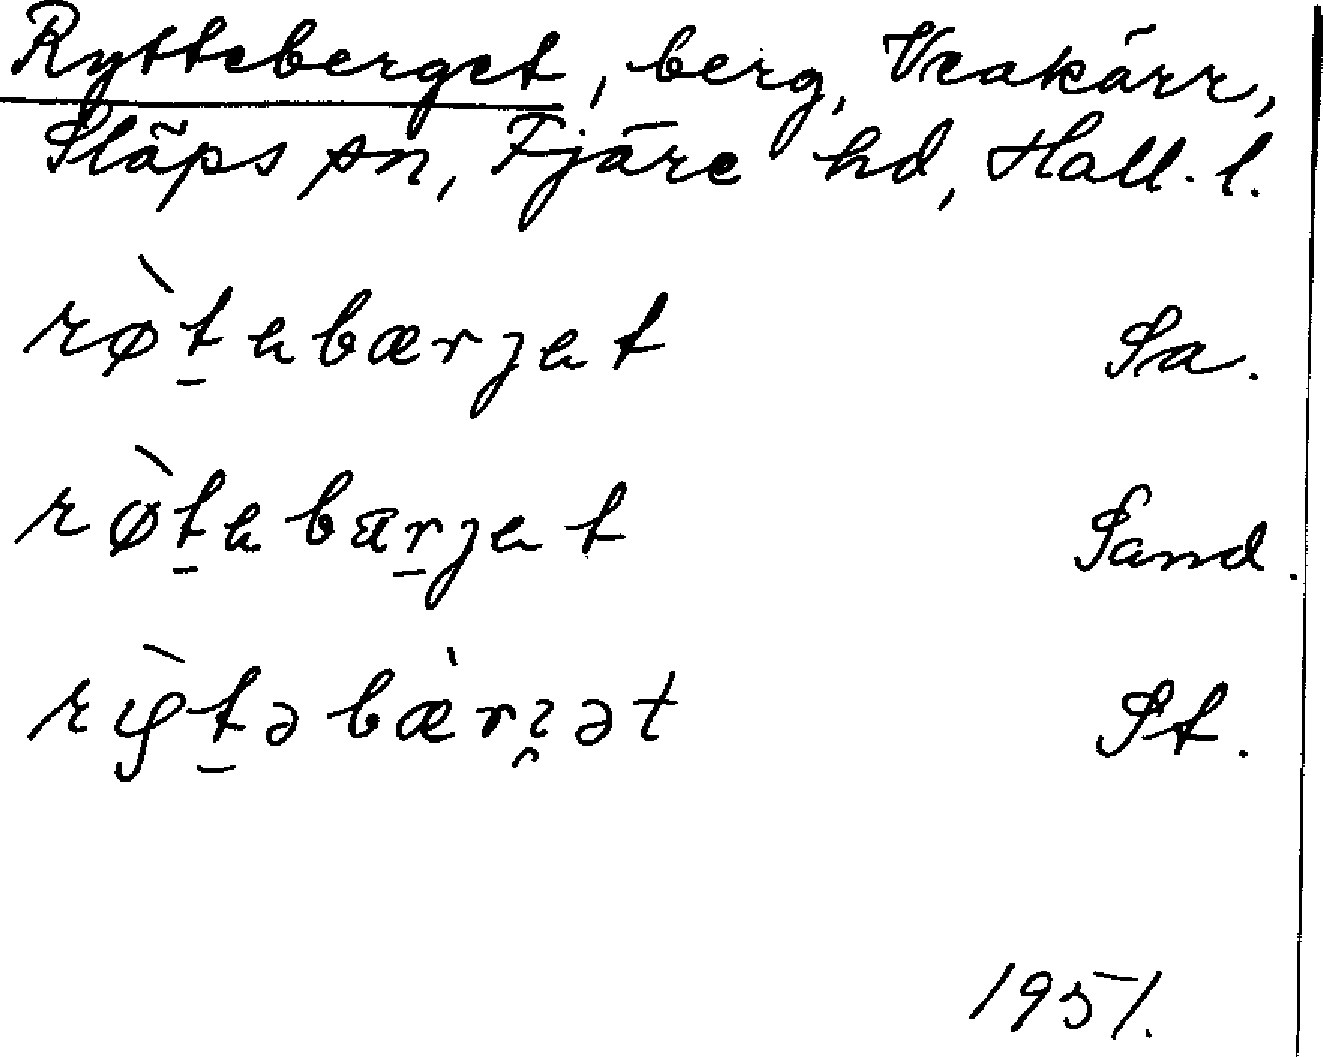 Rytteberget, berg, Veakärr,
Släps sn, Fjäre hd, Hall. l.
rø̀t̠ebærjet Sa.
rø̀t̠ebar̠jet Sand.
St.
1951.